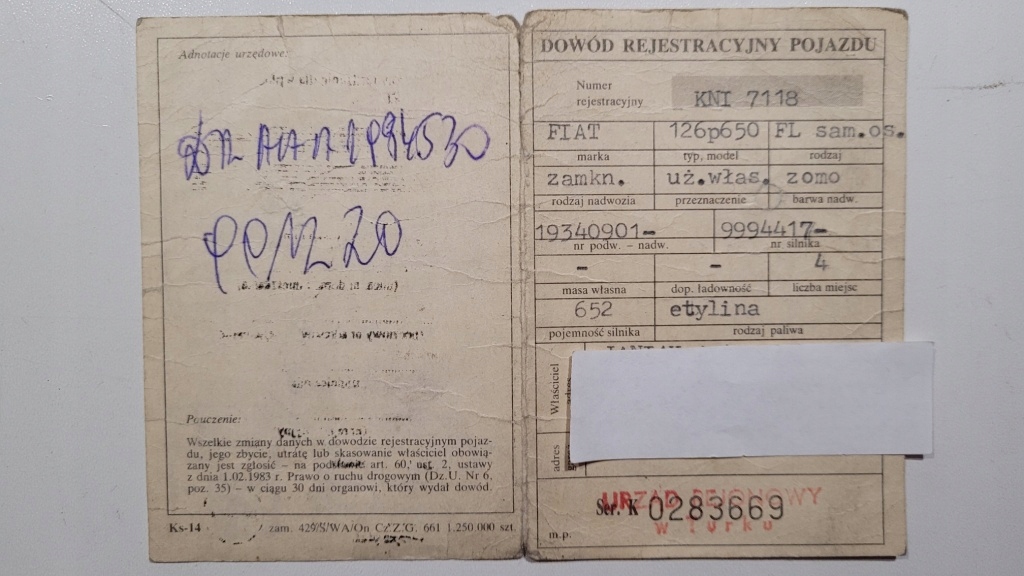 Adnotacje urzędowe:
PPM 20
Pouczenie:
Wszelkie zmiany danych w dowodzie rejestracyjnym pojaz-
du, jego zbycie, utratę lub skasowanie właściciel obowią-
zany jest zgłosić – na podstawie art. 60, ust. 2, ustawy
z dnia 1.02.1983 r. Prawo o ruchu drogowym (Dz.U. Nr 6,
poz. 35) – w ciągu 30 dni organowi, który wydał dowód.
Ks-14 zam. 429/S/WA/On CZ.Z.G. 661 1.250.000 szt.
DOWÓD REJESTRACYJNY POJAZDU
Numer
rejestracyjny KNI 7118
FIAT 126p650 FL sam.os.
marka typ, model rodzaj
zamkn. uż.włas. zomo
rodzaj nadwozia przeznaczenie barwa nadw.
19340901- 9994417-
nr podw. – nadw. nr silnika
- - 4
masa własna dop. ładowność liczba miejsc
652 etylina
pojemność silnika rodzaj paliwa
Właściciel
adres
adres
URZĄD REJONOWY
Ser. K 0283669
w Turku
m.p.